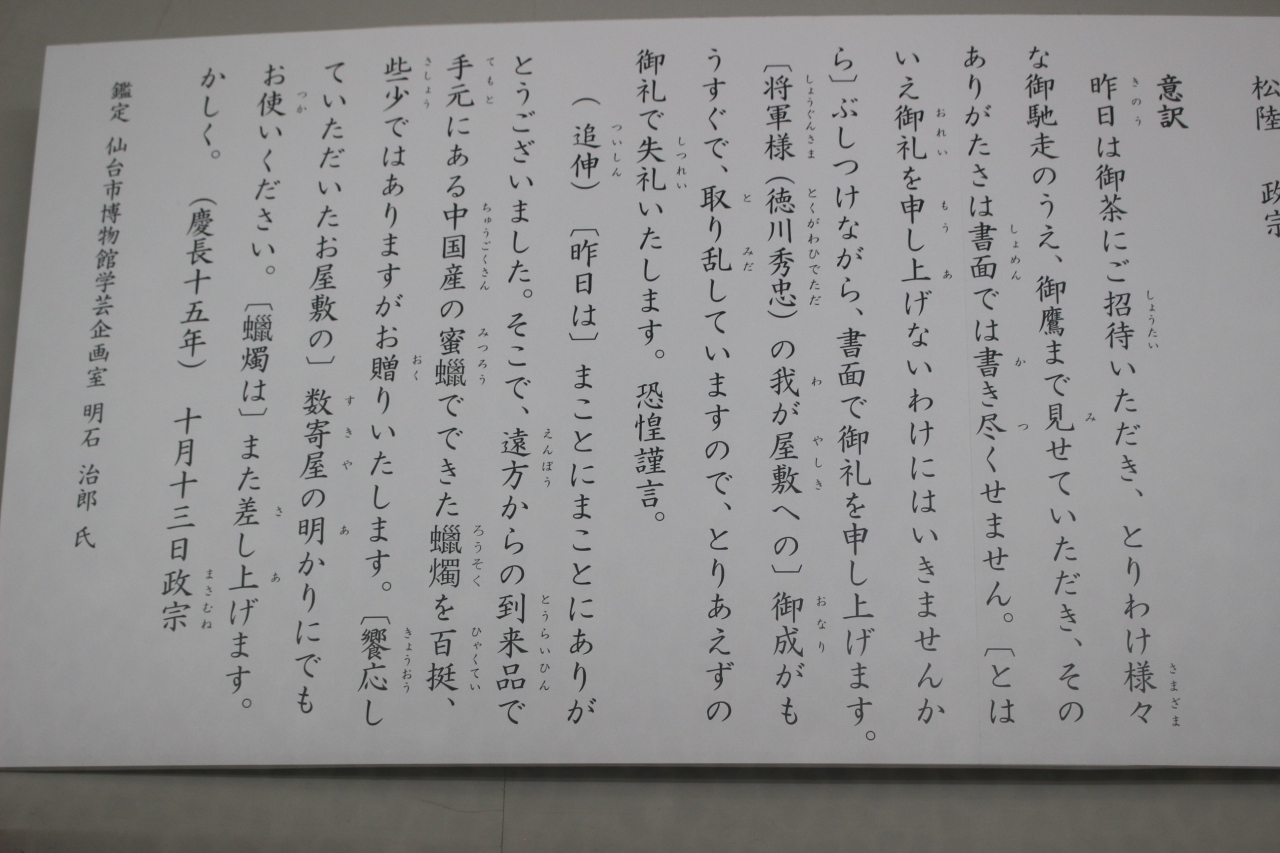 松陸　政宗
意訳
昨日は御茶にご招待いただき、とりわけ様々
な御馳走のうえ、御鷹まで見せていただき、その
ありがたさは書面では書き尽くせません。〔とは
いえ御礼を申し上げないわけにはいきませんか
ら〕ぶしつけながら、書面で御礼を申し上げます。
〔将軍様（徳川秀忠）の我が屋敷への〕御成がも
うすぐで、取り乱していますので、とりあえずの
御礼で失礼いたします。恐惶謹言。
（追伸）〔昨日は〕まことにまことにありが
とうございました。そこで、遠方からの到来品で
手元にある中国産の蜜蠟でできた蠟燭を百挺、
些少ではありますがお贈りいたします。〔饗応し
ていただいたお屋敷の〕数寄屋の明かりにでも
お使いください。〔蠟燭は〕また差し上げます。
かしく。（慶長十五年）　十月十三日政宗
鑑定　仙台市博物館学芸企画室　明石　治郎　氏